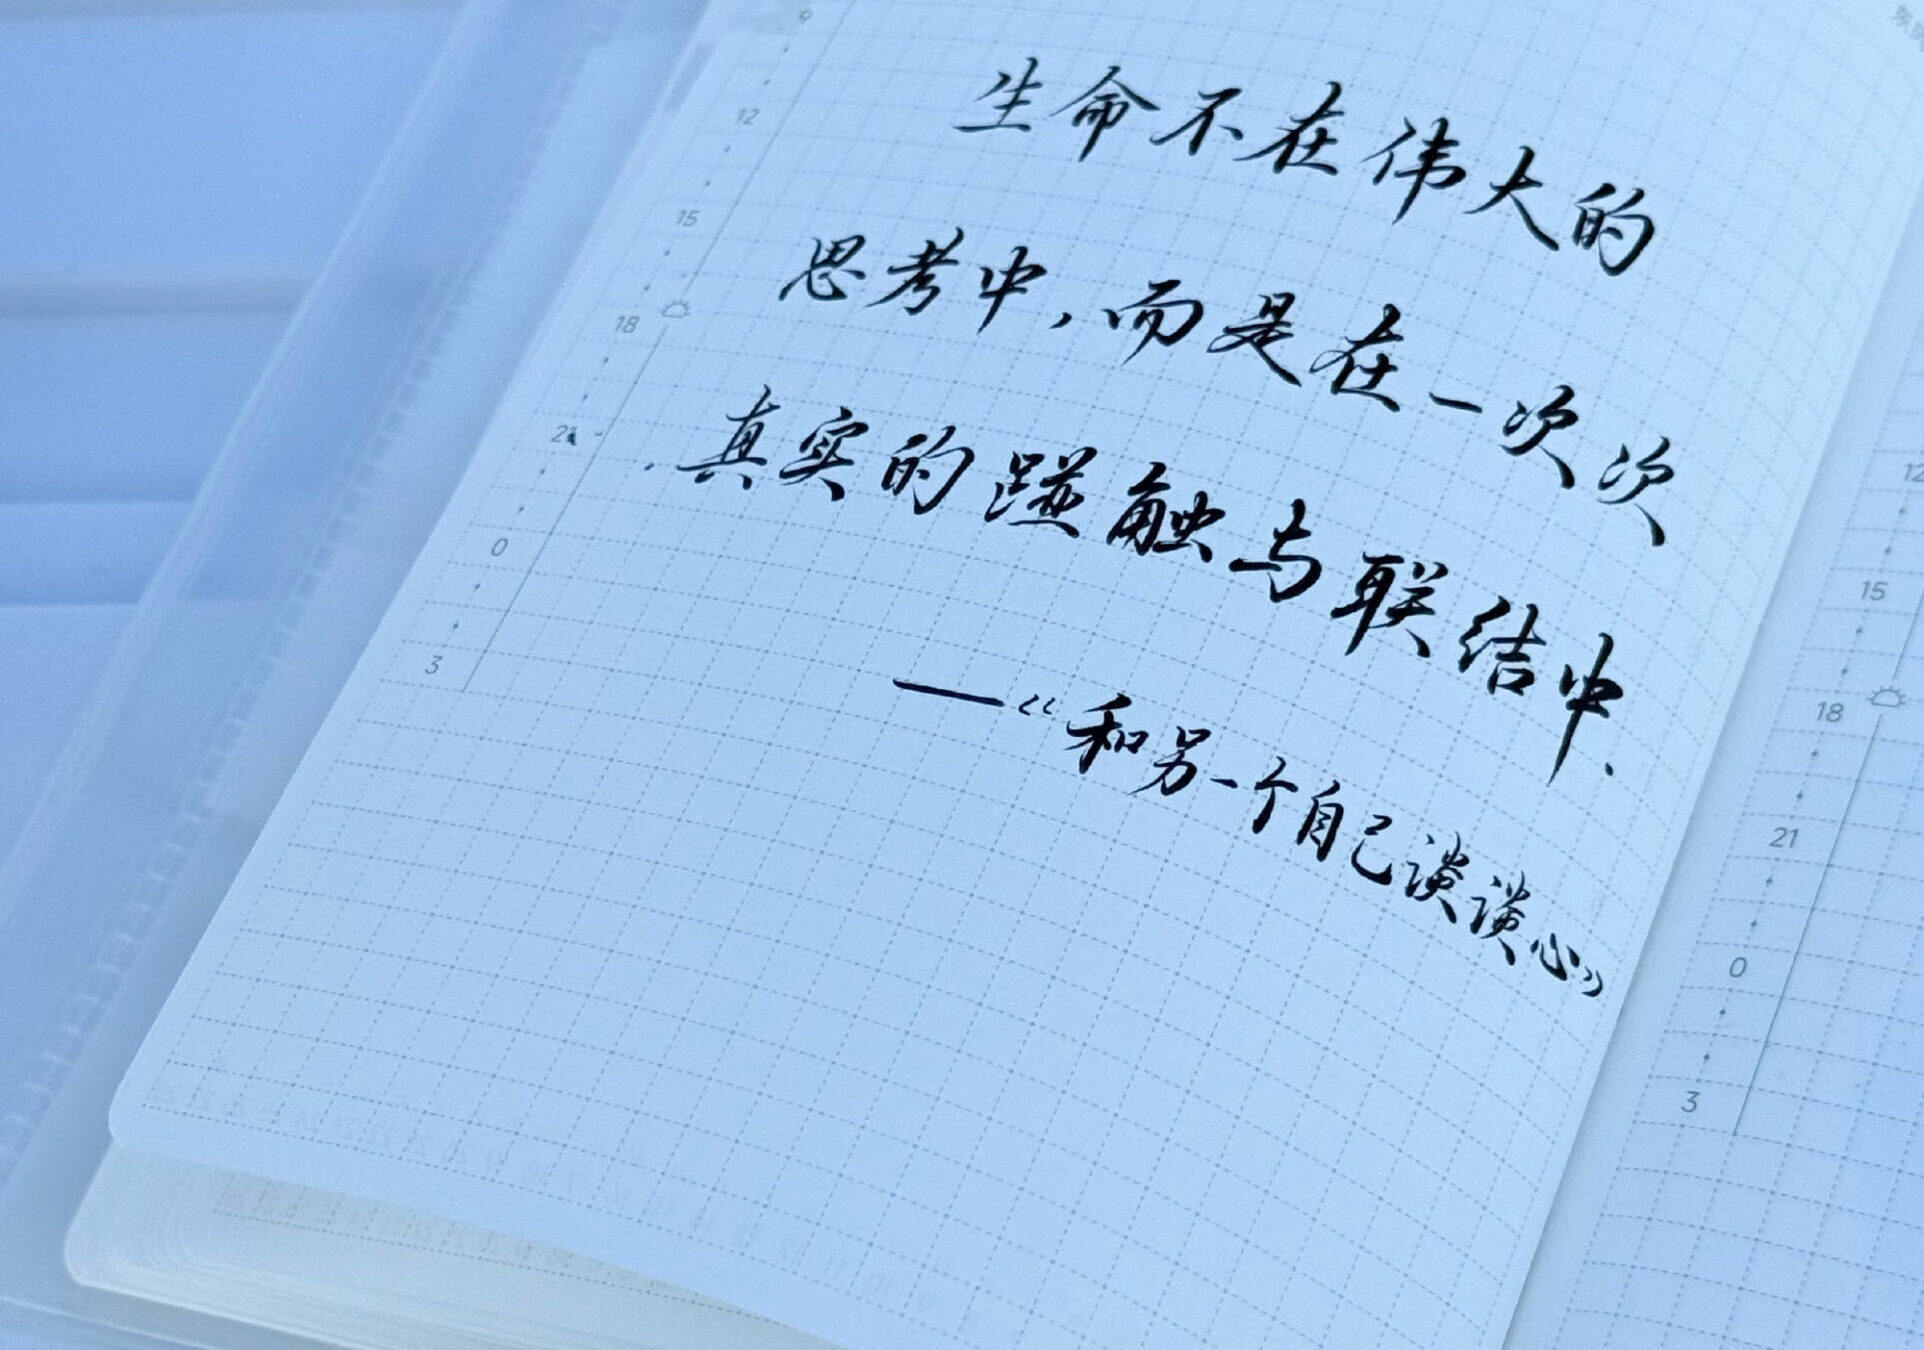 9
12
15
18
21
0
3
生命不在伟大的
思考中，而是在一次次
真实的踫触与联结中.
—《和另一个自己谈谈心》
12
15
18
21
0
3